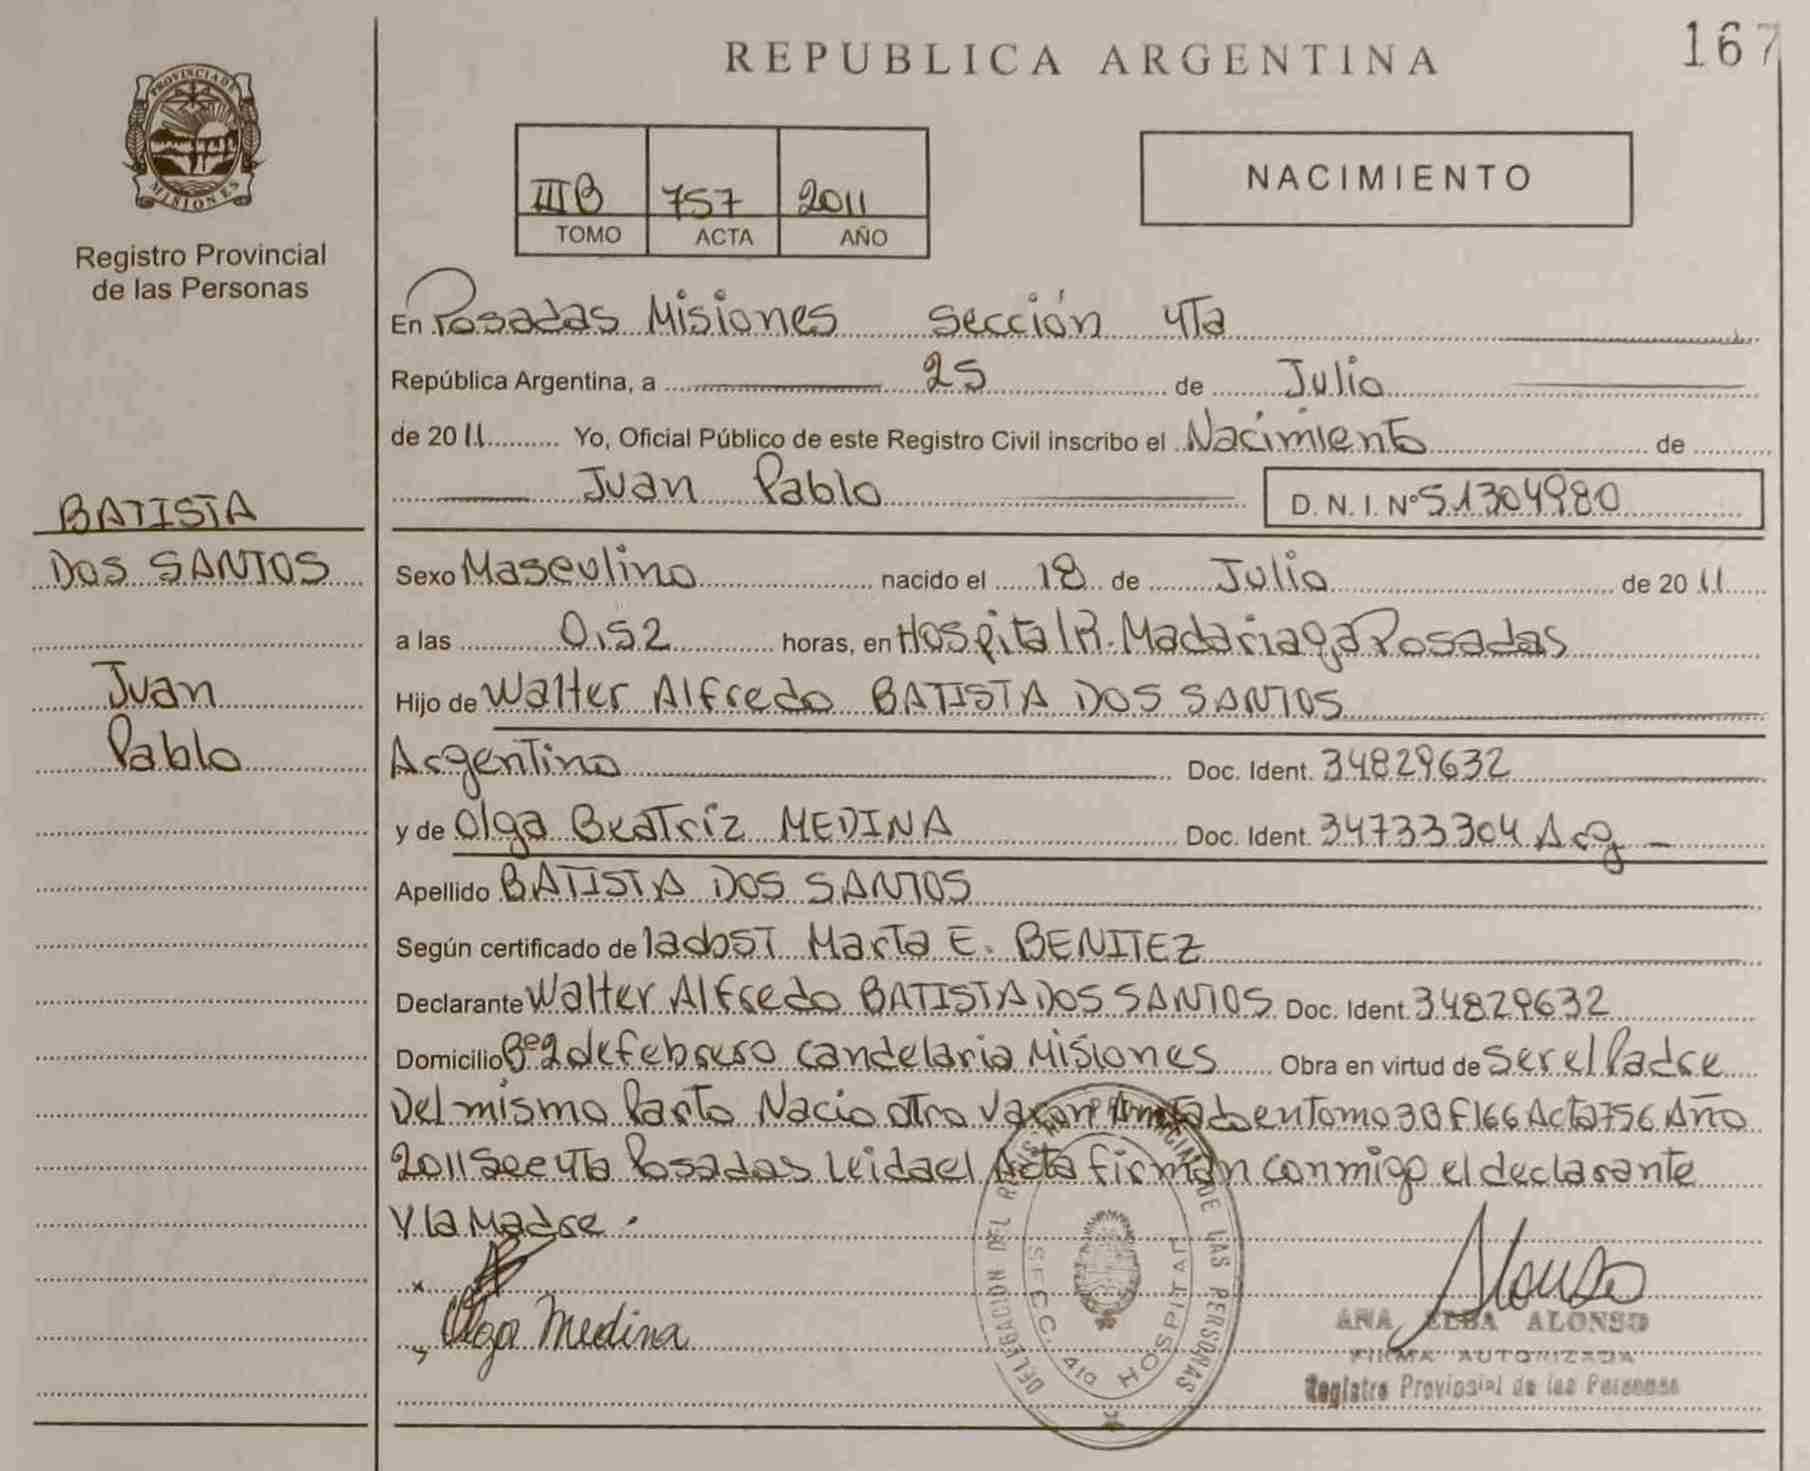 REPUBLICA ARGENTINA
167
PROVINCIA DE
MISIONES
Registro Provincial
de las Personas
IIIB 757 2011
TOMO ACTA AÑO
NACIMIENTO
En Posadas Misiones Sección 4Ta
República Argentina, a 25 de Julio
de 2011 Yo, Oficial Público de este Registro Civil inscribo el Nacimiento de
Juan Pablo D. N. I. Nº 51304980
BATISTA
DOS SANTOS
Juan
Pablo
Sexo Masculino nacido el 18 de Julio de 2011
a las 0,52 horas, en Hospital R. Madariaga Posadas
Hijo de Walter Alfredo BATISTA DOS SANTOS
Argentino Doc. Ident. 34829632
y de Olga Beatriz MEDINA Doc. Ident. 34733304 Arg -
Apellido BATISTA DOS SANTOS
Según certificado de la obsT Marta E. BENITEZ
Declarante Walter Alfredo BATISTA DOS SANTOS Doc. Ident. 34829632
Domicilio Bº 2 de febrero Candelaria Misiones Obra en virtud de ser el Padre
Del mismo Parto Nacio otro Varon Anotado en tomo 3B F166 Acta 756 Año
2011 Sec 4Ta Posadas Leida el Acta firman conmigo el declarante
Y la Madre.
Olga Medina
DELEGACION DEL REGISTRO PROVINCIAL DE LAS PERSONAS
SECC. 4ta HOSPITAL
Alonso
ANA ELBA ALONSO
FIRMA AUTORIZADA
Registro Provincial de las Personas